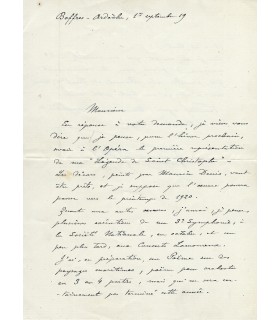 Boffres - Ardèche, 1er septembre 19
Monsieur
En réponse à votre demande, je viens vous
dire que je pense, pour l'hiver prochain,
avoir à l'Opéra la première représentation
de ma "Légende de Saint Christophe" -
Les décors, peints par Maurice Denis, sont
prêts, et je suppose que l'œuvre pourra
passer vers le printemps de 1920.
Quant aux autres œuvres, j'aurai, je pense,
plusieurs exécutions de ma 3e Symphonie, à
la Société Nationale, en octobre, et un
peu plus tard, aux Concerts Lamoureux.
J'ai, en préparation, un Poème sur des
paysages maritimes, poème pour orchestre
en 3 ou 4 parties, mais qui ne sera
pas terminé cette année.